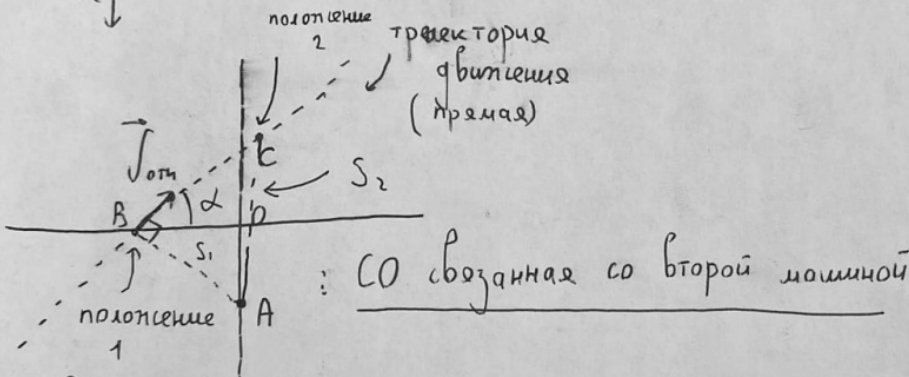 положение
2
траектория
движения
(прямая)
V отн
C
S2
B
α
D
S1
A
положение
1
: СО связанная со второй машиной